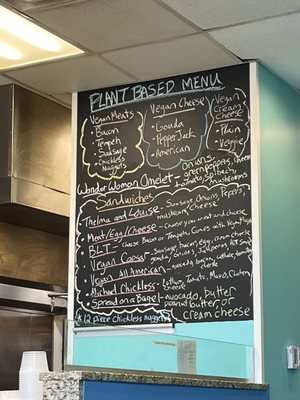 PLANT BASED MENU
Vegan Meats
• Bacon
• Tempeh
• Sausage
• Chickless
Nuggets
Vegan Cheese
• Gouda
• Pepper Jack
• American
Vegan
Cream
Cheese
• Plain
• Veggie
Wonder Woman Omelet - onions
green peppers, cheese
tomato, spinach,
mushrooms
Sandwiches
Thelma and Louise - Sausage, Onions, Peppers,
mushrooms, cheese
Meat/Egg/Cheese - Choose your meat and cheese
BLT - Choose Bacon or Tempeh. Comes with Vegan Mayo
Vegan Caesar - Sausage, bacon, egg, cream cheese
Vegan All American - avocado, bacon, lettuce, tomato
cheese
Michael Chickless - Lettuce, Tomato, Mayo, Gluten
cheese
Spread on a Bagel - avocado, butter
peanut butter, or
cream cheese
* 12 piece Chickless nuggets